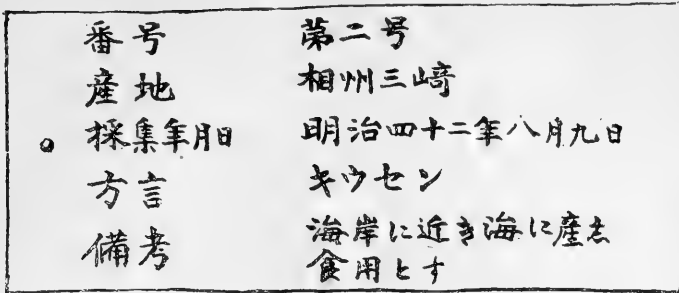 番号 第二号
産地 相州三崎
採集年月日 明治四十二年八月九日
方言 キウセン
備考 海岸に近き海に産し
食用とす